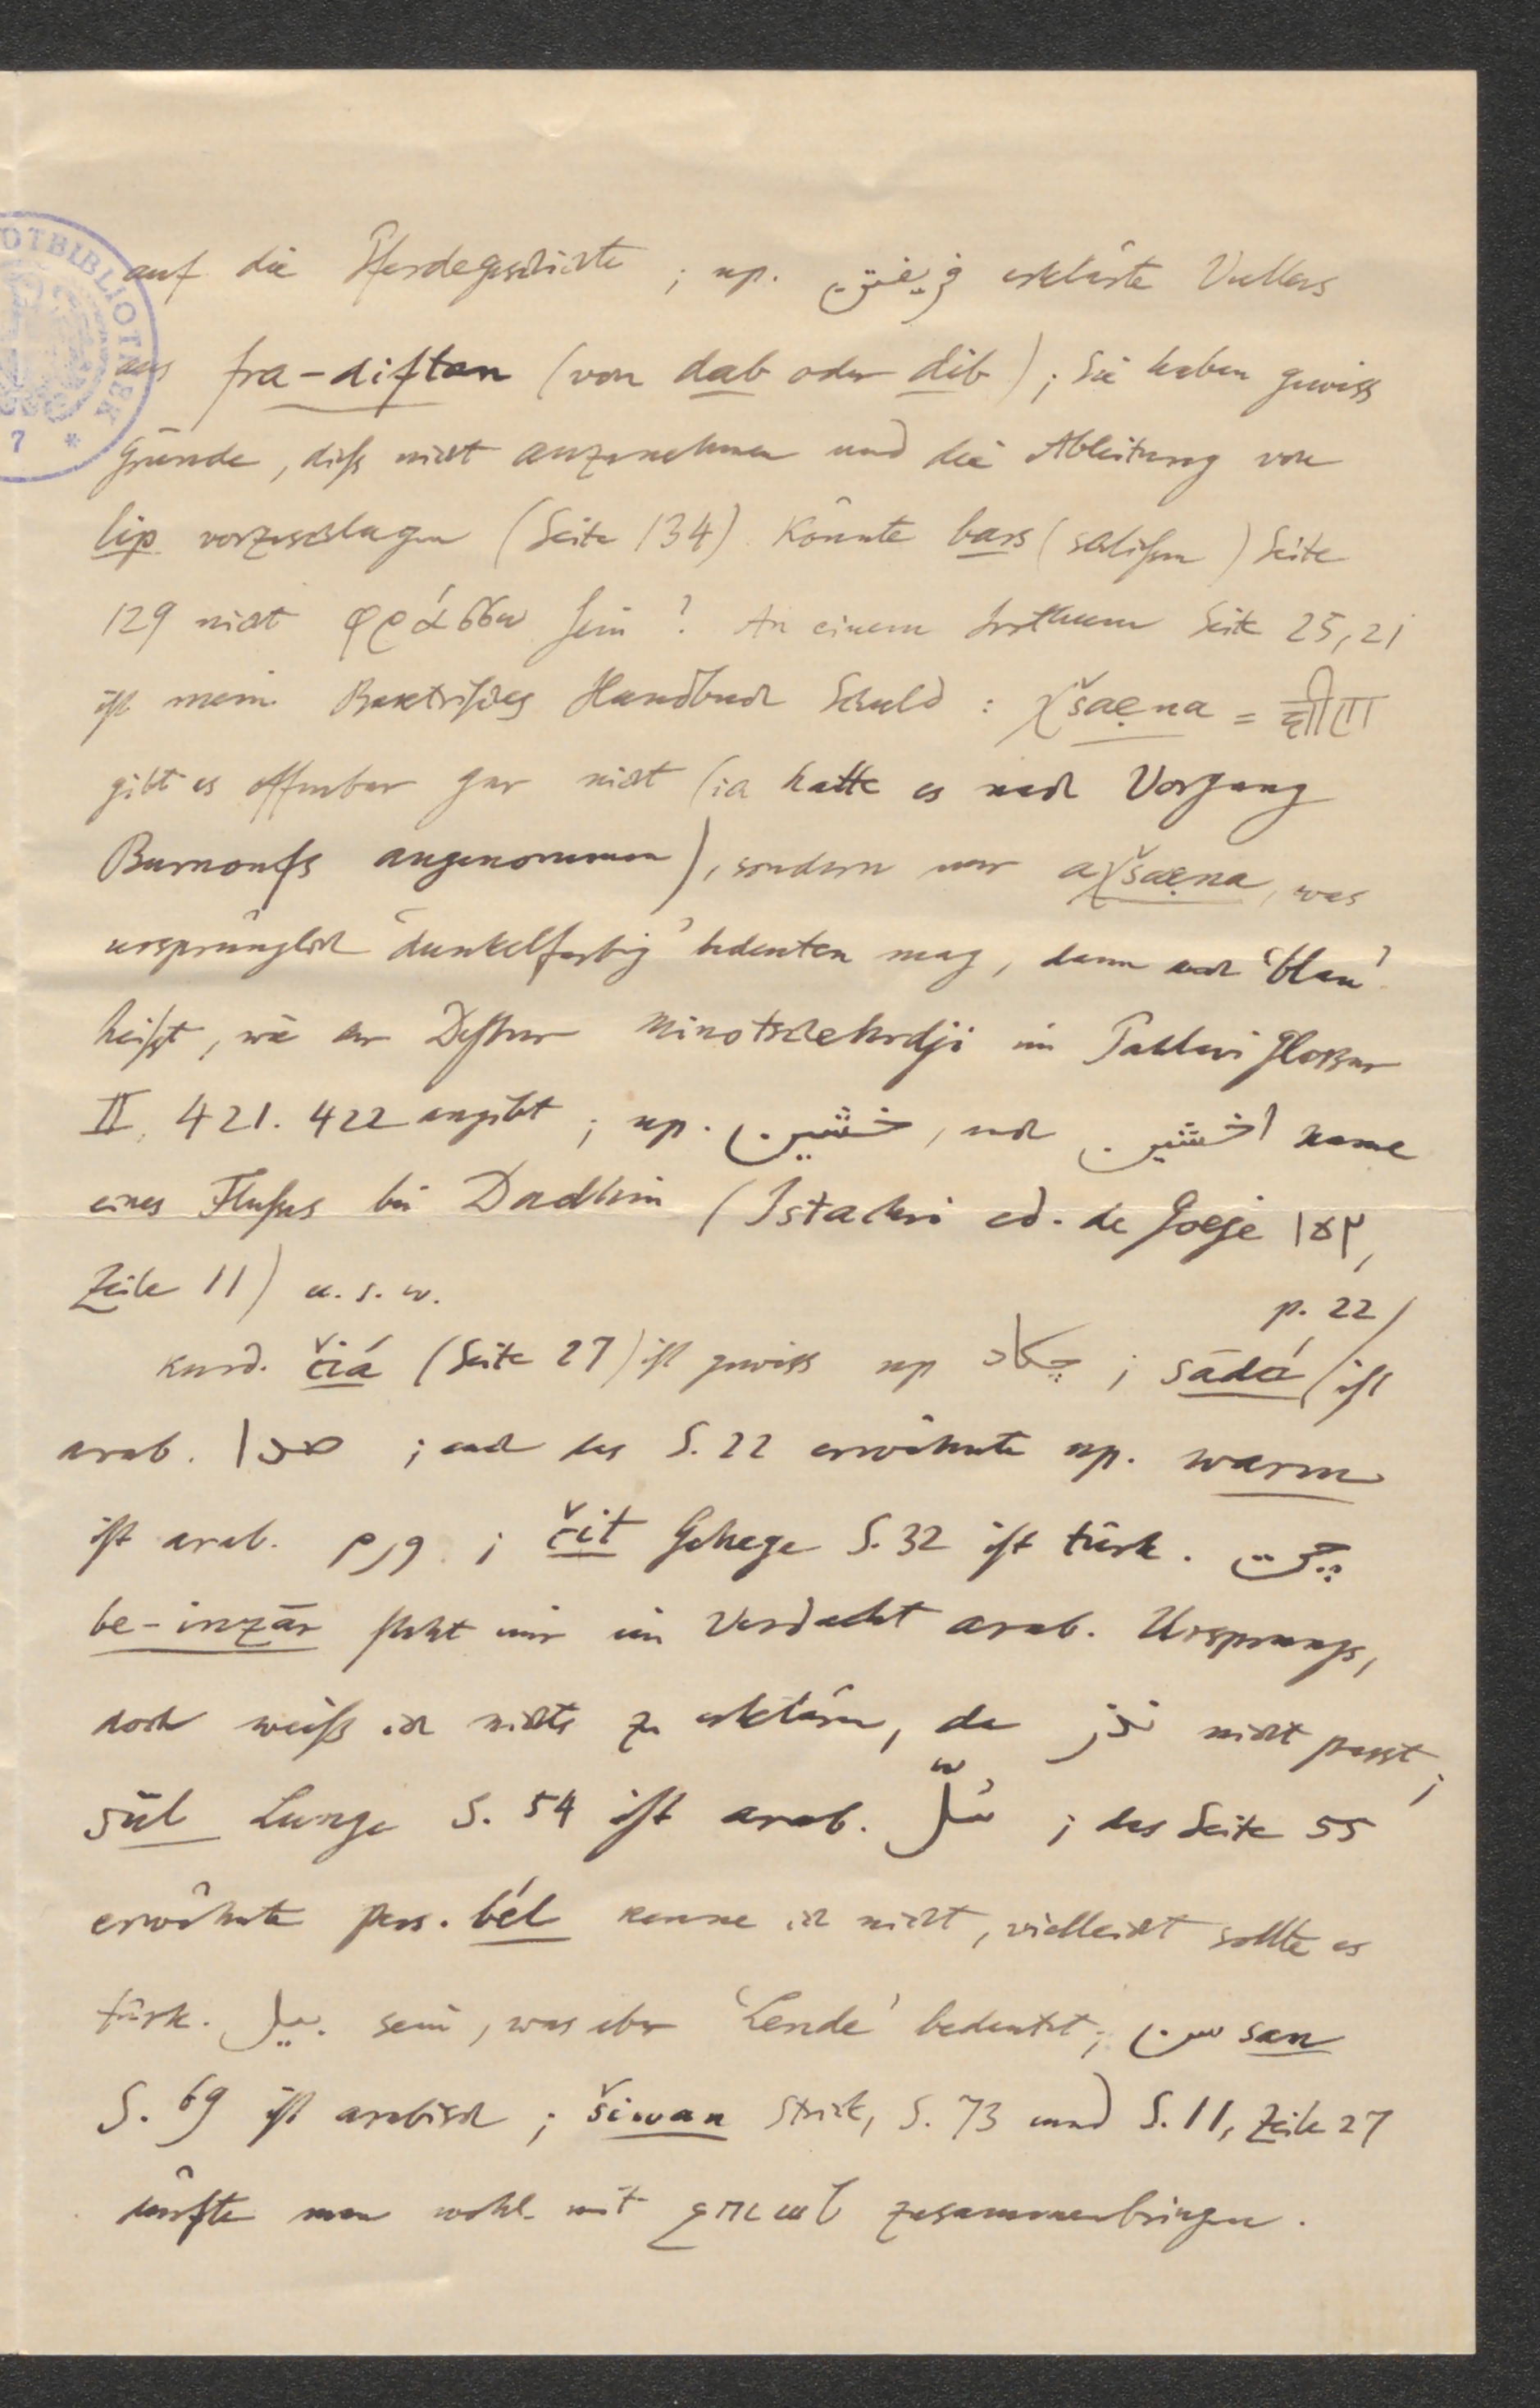 auf die Pferdegeschichte ; np. فریفتن erklärte Vullers
aus fra-diftan (von dab oder dib); Sie haben gewiss
Gründe, diss nicht anzunehmen und die Ableitung von
lip vorzuschlagen (Seite 134). Könnte bars (schlissen) Seite
129 nicht φράσσω sein? An einem Irrthum Seite 25,21
ist mein Baktrisches Handbuch Schuld: χšaęna = क्षीण
gibt es offenbar gar nicht (ich hatte es nach Vorgang
Burnoufs angenommen), sondern nur aχšaęna, was
ursprünglich 'dunkelfarbig' bedeuten mag, dann auch 'blau'
heisst, wie der Destur Minotschehrdji im Pahlavi Glossar
II, 421. 422 angibt; np. خشین, auch اخشین name
eines Flusses bei (Istachri ed. de Goeje ١٥٣,
Zeile 11) u. s. w.
p. 22
Kurd. čiá (Seite 27) ist gewiss np چکاد ; sādá ist
arab. صدا ; auch das S. 22 erwähnte np. warm
ist arab. ورم ; čit Gehege S. 32 ist türk. چیت
be-inzār steht mir im Verdacht arab. Ursprungs,
doch weiss ich nichts zu erklären, da نذر nicht passt;
sūl Lunge S. 54 ist arab. سُلّ ; das Seite 55
erwähnte pers. bél kenne ich nicht, vielleicht sollte es
türk. بیل sein, was aber 'Lende' bedeutet; سن san
S. 69 ist arabisch; šiwan Strick, S. 73 und S. 11, Zeile 27
dürfte man wohl mit zusammenbringen.
OTBIBLIOTHEK
7 *